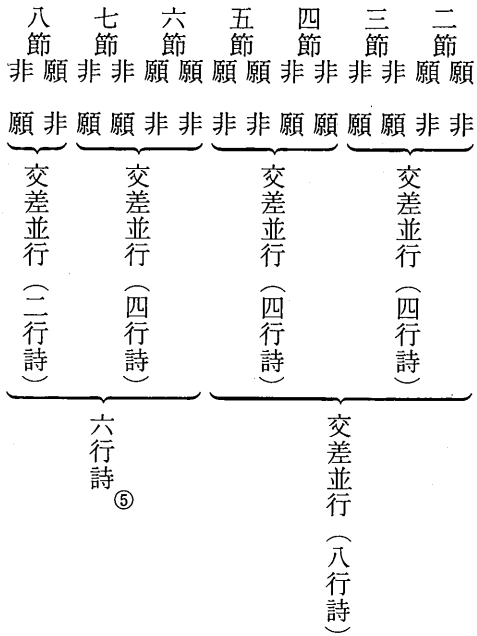 二節
願非
願非
三節
非願
非願
四節
非願
非願
五節
願非
願非
六節
願非
願非
七節
非願
非願
八節
願非
非願
交差並行（四行詩）
交差並行（四行詩）
交差並行（四行詩）
交差並行（二行詩）
交差並行（八行詩）
六行詩⑤